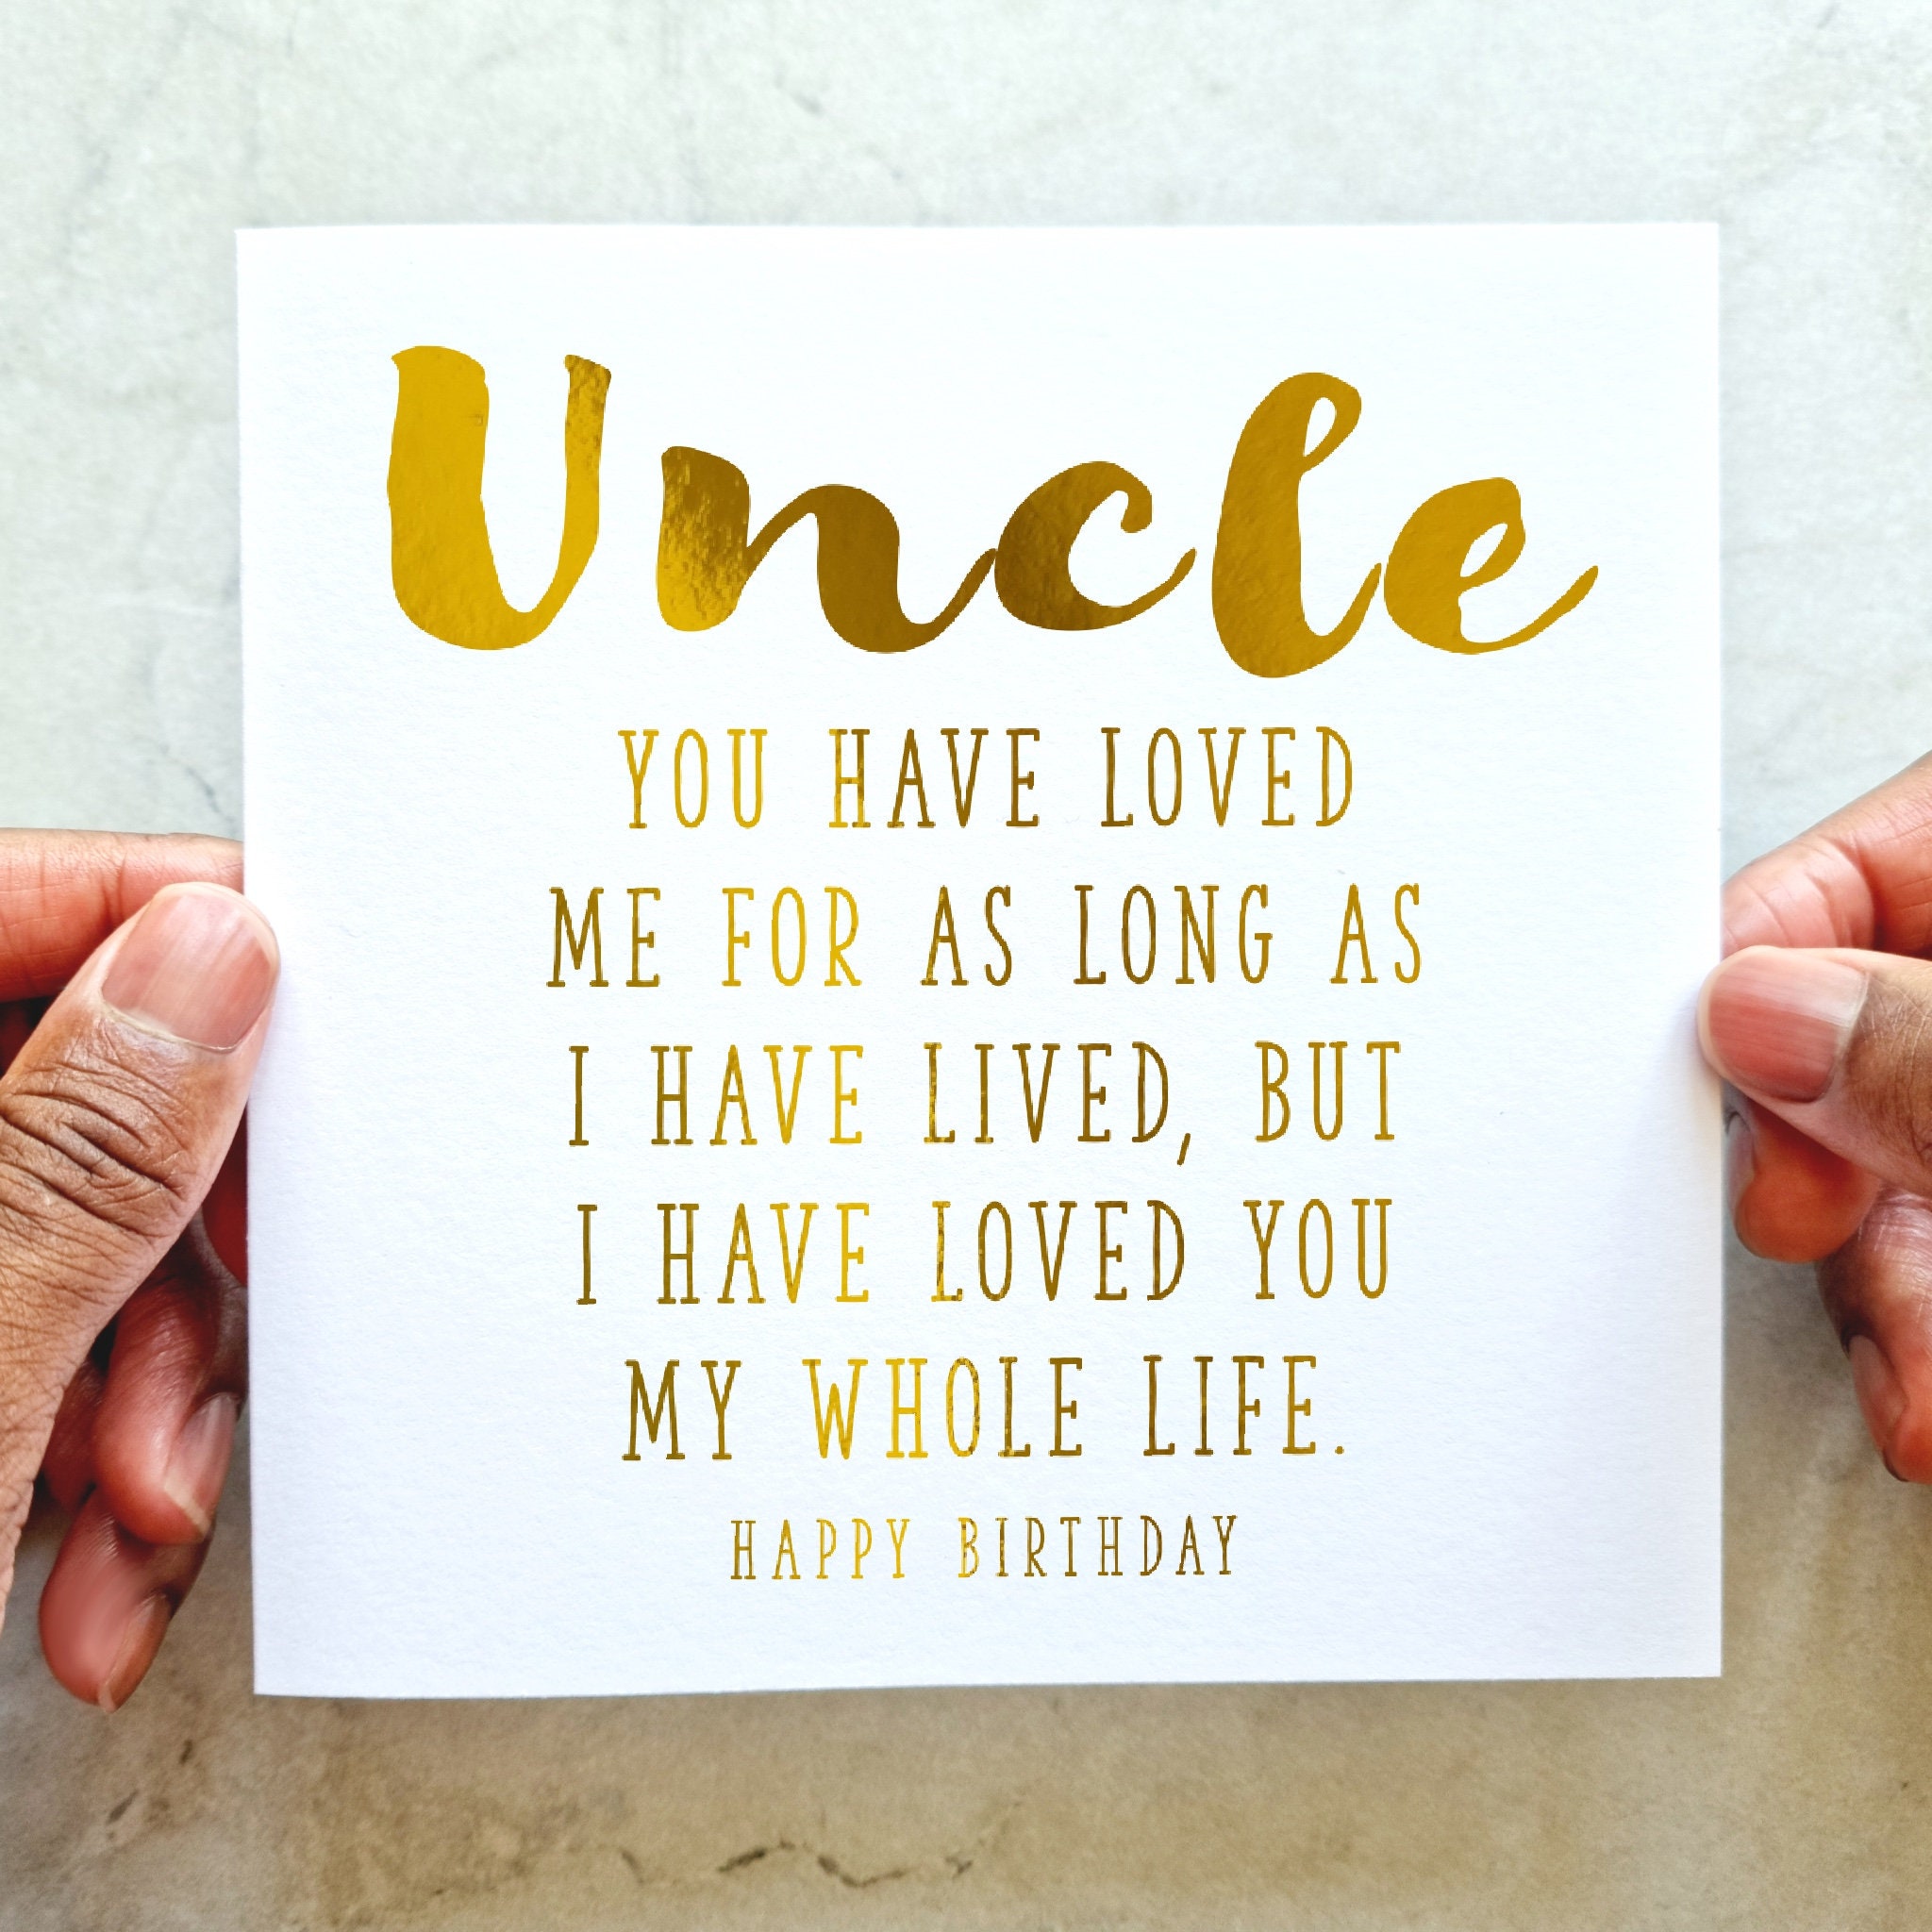 Uncle
YOU HAVE LOVED
ME FOR AS LONG AS
I HAVE LIVED, BUT
I HAVE LOVED YOU
MY WHOLE LIFE.
HAPPY BIRTHDAY